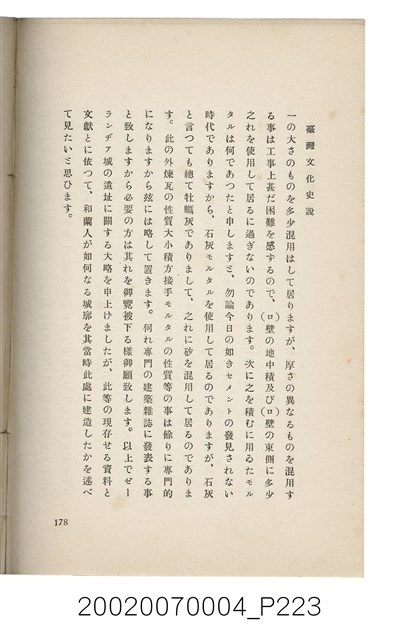 臺灣文化史說
一の大さのものを多少混用はして居りますが、厚さの異なるものを混用す
る事は工事上甚だ困難を感ずるので、(ロ)壁の地中積及び(ロ)壁の東側に多少
之れを使用して居るに過ぎないのであります。次に之を積むに用ゐたモル
タルは何であつたと申しますと、勿論今日の如きセメントの發見されない
時代でありますから、石灰モルタルを使用して居るのでありますが、石灰
と言つても總て牡蠣灰でありまして、之れに砂を混用して居るのでありま
す。此の外煉瓦の性質大小積方接手モルタルの性質等の事は餘りに專門的
になりますから玆には略して置きます。何れ專門の建築雜誌に發表する事
と致しますから必要の方は其れを御覽被下る樣御願致します。以上でゼー
ランヂア城の遺址に關する大略を申上けましたが、此等の現存せる資料と
文獻とに依つて、和蘭人が如何なる城廓を其當時此處に建造したかを述べ
て見たいと思ひます。
178
20020070004_P223